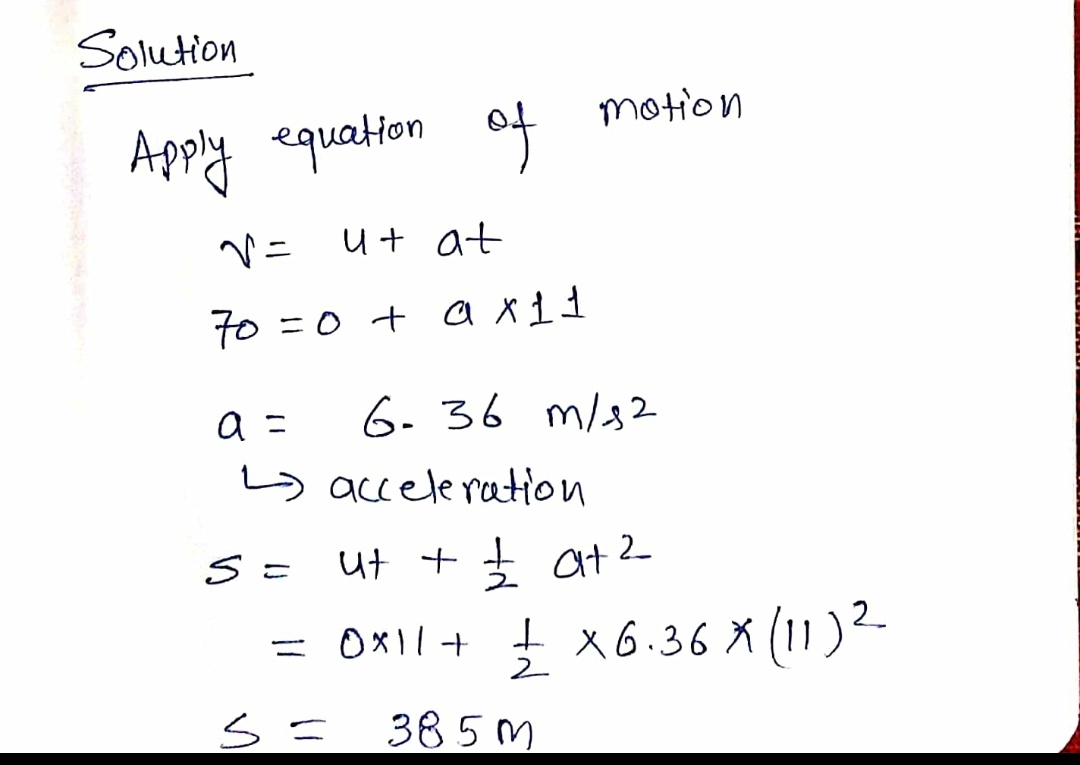 Solution
Apply equation of motion
v = u + at
70 = 0 + a × 11
a = 6.36 m/s2
↳ acceleration
s = ut + 1/2 at2
= 0×11 + 1/2 × 6.36 × (11)2
s = 385 m